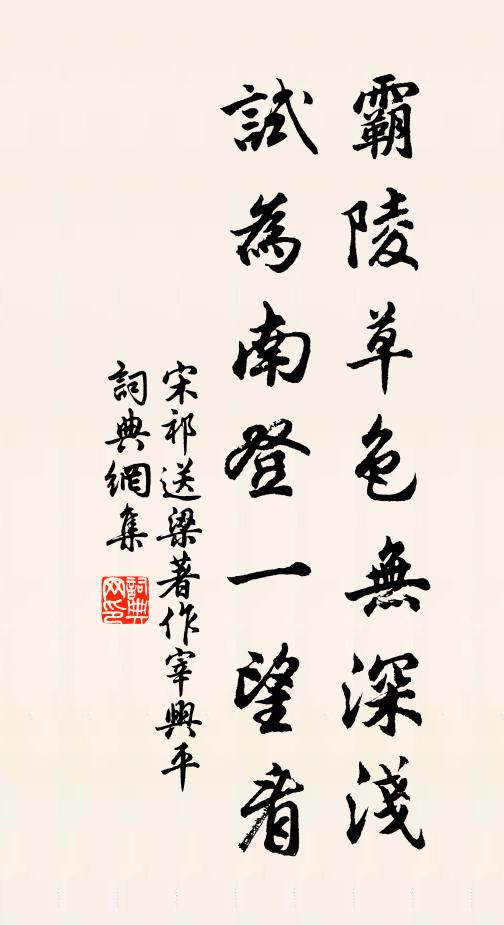 霸陵草色無深淺
試為南登一望看
宋祁送梁著作宰興平
詞典網集
詞典网印